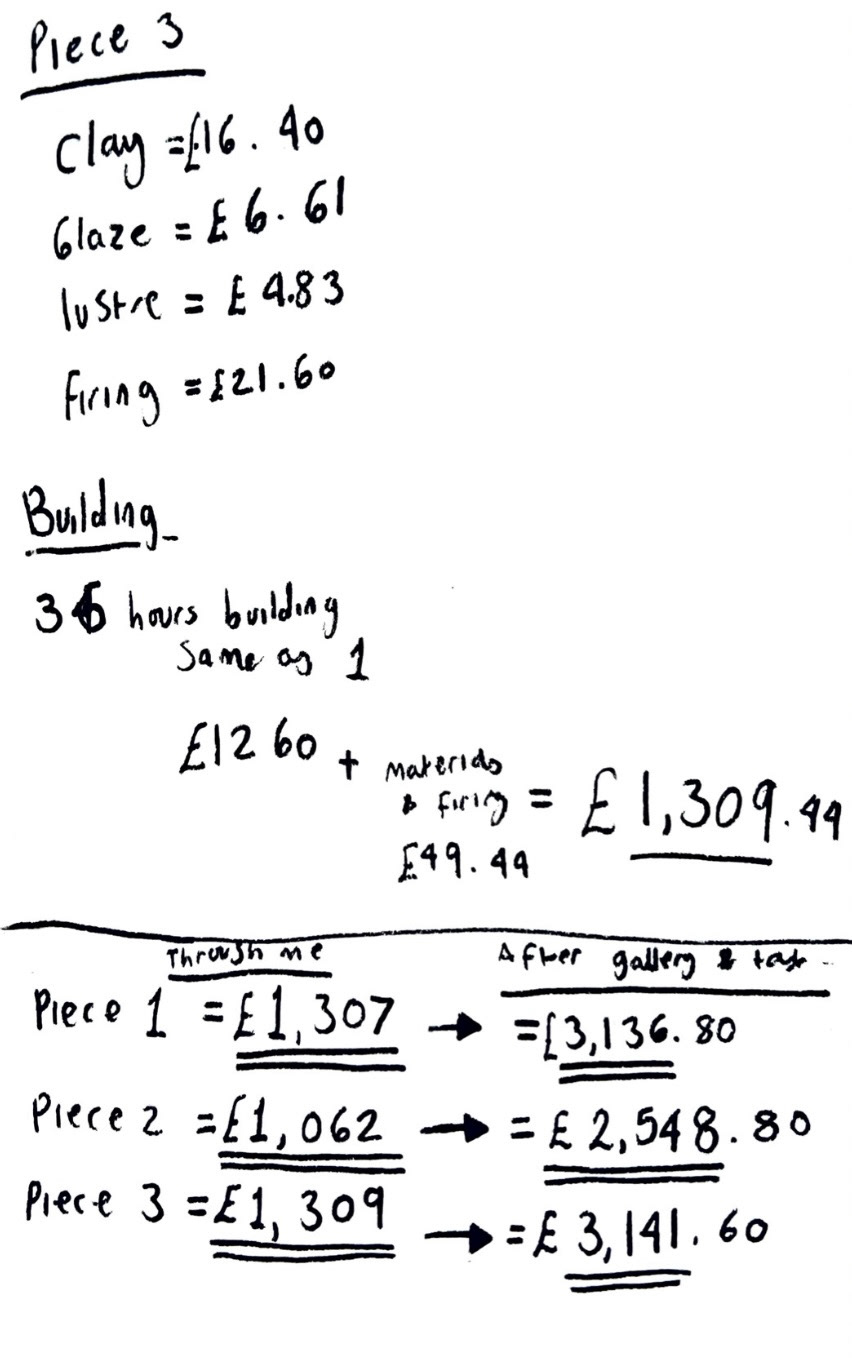 Piece 3
Clay = £16.40
Glaze = £6.61
lustre = £4.83
firing = £21.60
Building
36 hours building
Same as 1
£1260 + materials
& firing = £1,309.44
£49.44
Through me
After gallery & tax
Piece 1 = £1,307 → = £3,136.80
Piece 2 = £1,062 → = £2,548.80
Piece 3 = £1,309 → = £3,141.60